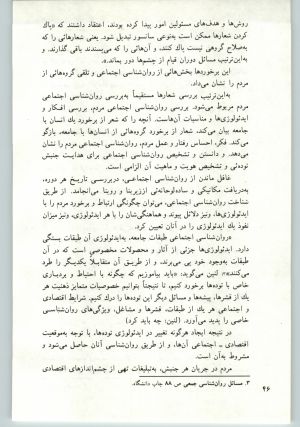 روش‌ها و هدف‌های مسئولین امور پیدا کرده بودند، اعتقاد داشتند که «باک
کردن شعارها ممکن است به‌نوعی سانسور تبدیل شود. یعنی شعارهائی را که
به‌صلاح گروهی نیست پاك کنند، و آن‌هائی را که می‌پسندند باقی گذارند. و
به‌این‌ترتیب مسائل دوران قیام از چشم‌ها دور بماند.»
این برخوردها بخش‌هائی از روان‌شناسی اجتماعی و تلقی گروه‌هائی از
مردم را نشان می‌داد.
به‌این‌ترتیب بررسی شعارها مستقیماً به‌بررسی روان‌شناسی اجتماعی
مردم مربوط می‌شود. بررسی روان‌شناسی اجتماعی مردم، بررسی افکار و
ایدئولوژی‌ها و مناسبات آن‌هاست. آنچه را که شعر از برخورد یك انسان با
جامعه بیان می‌کند، شعار از برخورد گروه‌هائی از انسان‌ها با جامعه، بازگو
می‌کند. فکر، احساس رفتار و عمل مردم، روان‌شناسی اجتماعی مردم را نشان
می‌دهد. و دانستن و تشخیص روان‌شناسی اجتماعی برای هدایت جنبش
توده‌ئی و تشخیص هویت و ماهیت آن الزامی است.
غافل ماندن از روان‌شناسی اجتماعی، دربررسی تاریخ هر دوره،
به‌دریافت مکانیکی و ساده‌لوحانه‌ئی اززیربنا و روبنا می‌انجامد. از طریق
شناخت روان‌شناسی اجتماعی، می‌توان چگونگی ارتباط و برخورد مردم را با
ایدئولوژی‌ها، ونیز دلائل پیوند و هماهنگی‌شان را با هر ایدئولوژی، ونیز میزان
نفوذ یك ایدئولوژی را در آنان روشن کرد.
«روان‌شناسی اجتماعی طبقات جامعه، به‌ایدئولوژی آن طبقات بستگی
دارد. ایدئولوژی‌ها جزئی از آثار و محصولات مخصوصی است که در آن
طبقات به‌وجود خود پی می‌برند، و از طریق آن متقابلاً یکدیگر را طرد
می‌کنند»³ لنین می‌گوید: «باید بیاموزیم که چگونه با احتیاط و بردباری
خاص با توده‌ها برخورد کنیم، تا نتیجتاً بتوانیم خصوصیات متمایز ذهنیت هر
یك از قشرها، پیشه‌ها و مسائل دیگر این توده‌ها را درك کنیم. شرایط اقتصادی
و اجتماعی هر یك از طبقات، قشرها و مشاغل، ویژگی‌های روان‌شناسی
خاصی را پدید می‌آورد. (لنین: چه باید کرد)
در نتیجه ایجاد هرگونه تغییر در ایدئولوژی توده‌ها، با توجه به‌موقعیت
اقتصادی ـ اجتماعی آن‌ها، و از طریق روان‌شناسی آنان حاصل می‌شود و
مشروط به‌آن است.
مردم در جریان هر جنبش، به‌تبلیغات تهی از چشم‌اندازهای اقتصادی
۳. مسائل روان‌شناسی جمعی ص ۸۸ چاپ دانشگاه.
۴۶